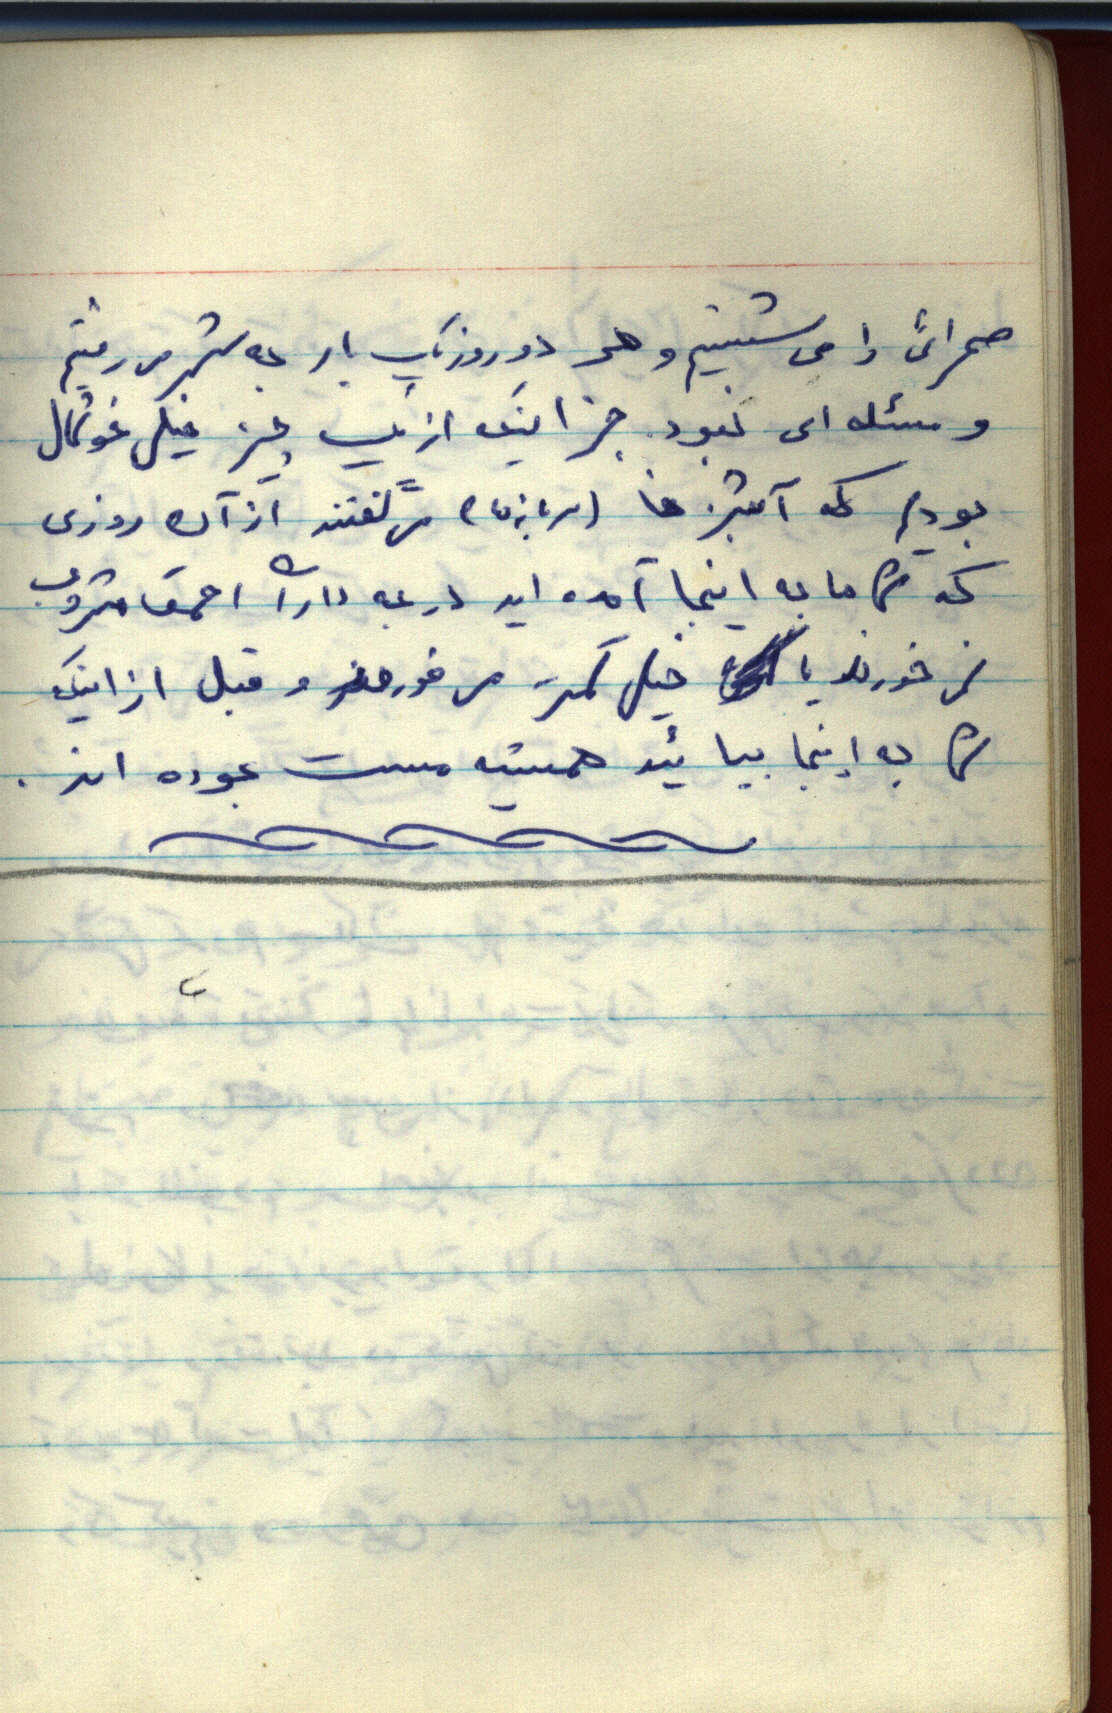 صحرائی را می شستیم و هر دو روز یک بار به شهر می رفتیم
و مسئله ای نبود. جز اینکه از یک چیز خیلی خوشحال
بودیم که آشپزها (سربازها) می گفتند از آن روزی
که شماها به اینجا آمده اید درجه دارای احمق مشروب
نمی خورند یا خیلی کمتر می خورند و قبل از اینکه
شما به اینجا بیائید همیشه مست بوده اند.